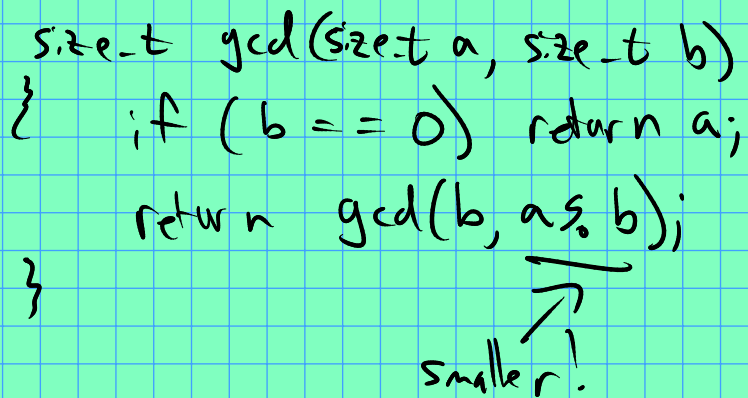 size_t gcd(size_t a, size_t b)
{ if (b == 0) return a;
return gcd(b, a % b);
}
smaller!